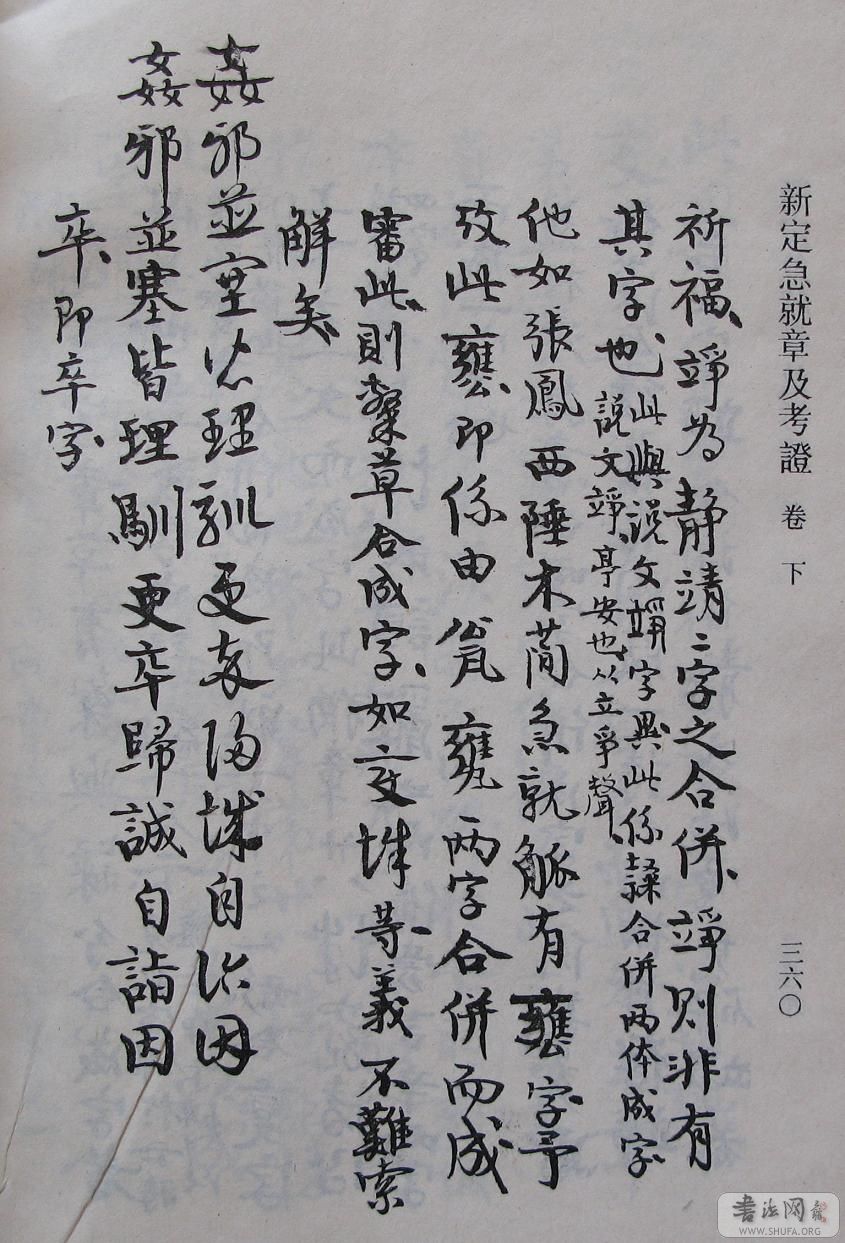 新定急就章及考證 卷下 三六〇
祈福、竫為静靖二字之合併、竫則非有
其字也、此與説文竫字異此係隸合併兩体成字
説文竫、亭安也、从立爭聲、
他如張鳳西陲木蕳急就觚有字、予
攷此即係由瓮甕两字合併而成
審此、則草合成字、如等義不難索
解矣、
姦邪並塞皆理馴更卒歸誠自詣因
姦邪並塞皆理馴更卒歸誠自詣因
卒、即卒字、
書法网
WWW.SHUFA.ORG